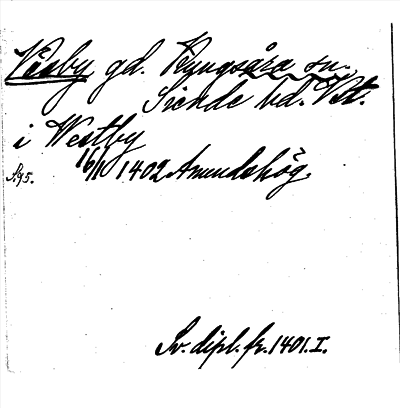 Viby gd. Kungsåra sn.
Siende hd. Vstm.
i Westby
S. 95. 16/11 1402 Amundshög.
Sv. dipl. fr. 1401. I.